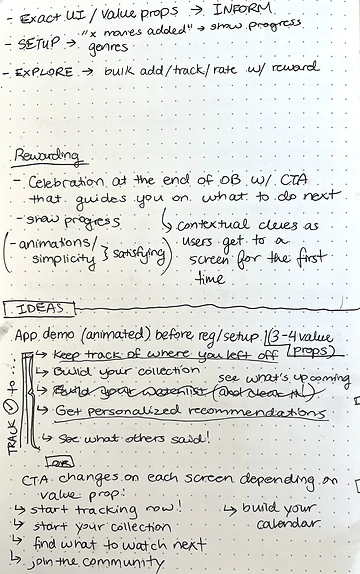 - Exact UI / value props → INFORM
- SETUP → "x movies added" → show progress
genres
- EXPLORE → bulk add/track/rate w/ reward
Rewarding
- Celebration at the end of OB w/ CTA
that guides you on what to do next
- show progress
(- animations/
simplicity } satisfying)
↳ contextual clues as
users get to a
screen for the first
time
IDEAS
App demo (animated) before reg/setup (3-4 value
props)
TRACK ✓ to...
↳ Keep track of where you left off
↳ Build your collection
see what's upcoming
↳ Build your watchlist (and clear it)
↳ Get personalized recommendations
↳ See what others said!
OR
CTA changes on each screen depending on
value prop:
↳ start tracking now!
↳ start your collection
↳ find what to watch next
↳ join the community
↳ build your
calendar